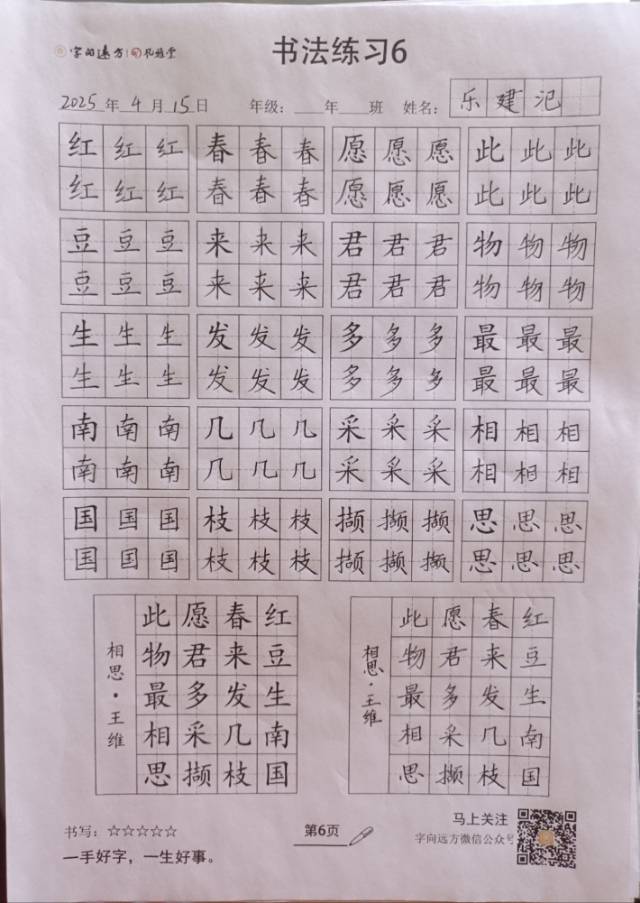 字向远方
书法练习6
2025年4月15日 年级：__年__班 姓名：乐建记
红红红 春春春 愿愿愿 此此此
红红红 春春春 愿愿愿 此此此
豆豆豆 来来来 君君君 物物物
豆豆豆 来来来 君君君 物物物
生生生 发发发 多多多 最最最
生生生 发发发 多多多 最最最
南南南 几几几 采采采 相相相
南南南 几几几 采采采 相相相
国国国 枝枝枝 撷撷撷 思思思
国国国 枝枝枝 撷撷撷 思思思
红豆生南国
春来发几枝
愿君多采撷
此物最相思
相思·王维
红豆生南国
春来发几枝
愿君多采撷
此物最相思
相思·王维
书写：☆☆☆☆☆
一手好字，一生好事。
第6页
马上关注
字向远方微信公众号